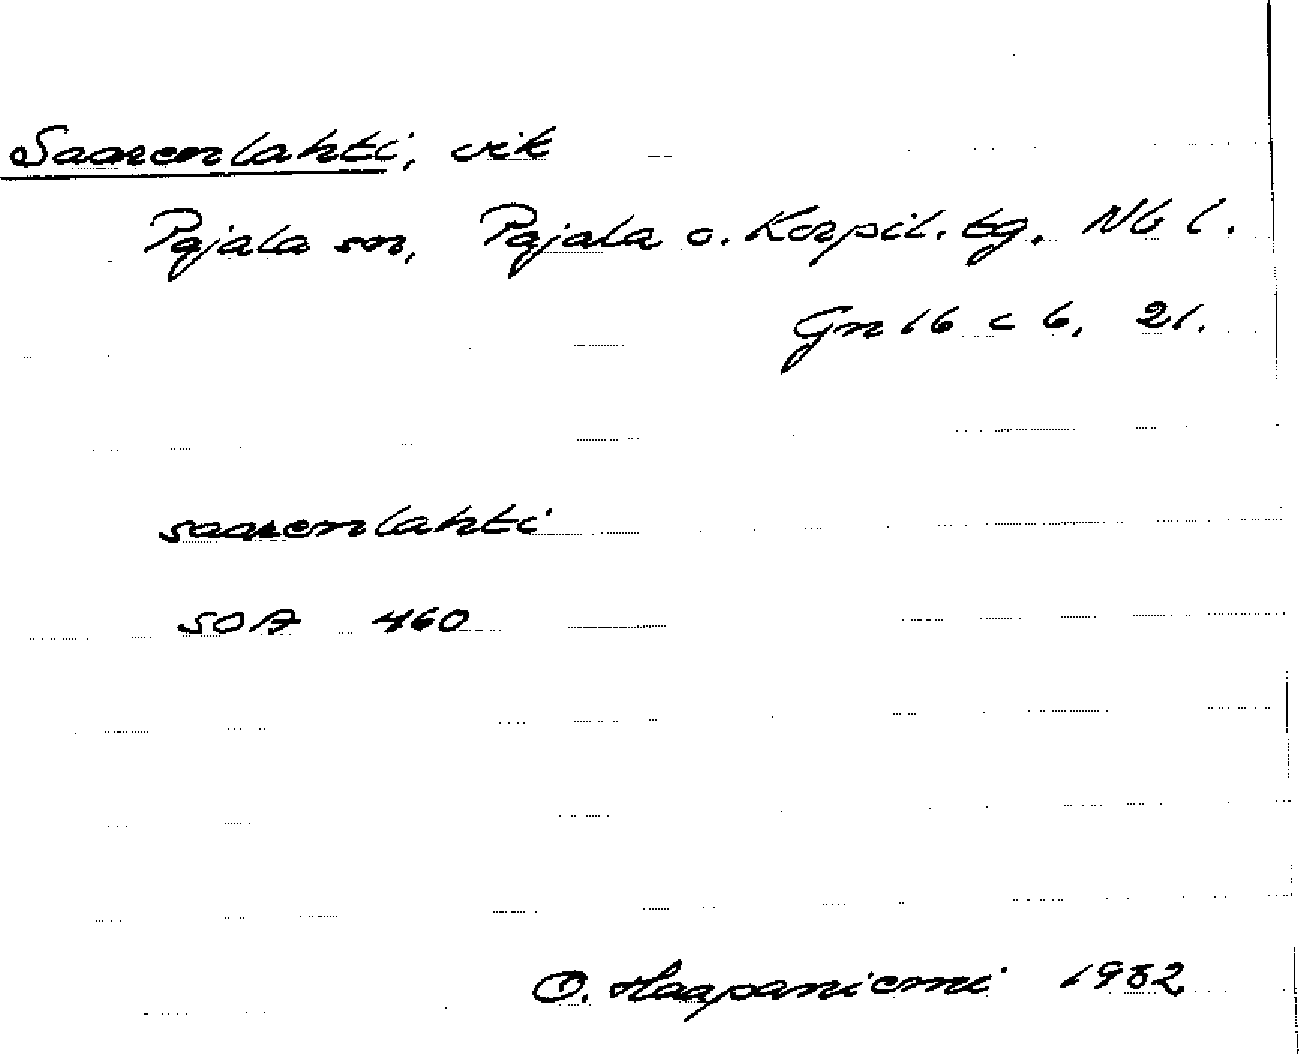 Saarenlahti, vik
Pajala sn, Pajala o. Korpil. tg, Nb l.
Gn 16 c 6, 21.
saarenlahti
SOA 460
O. Haapaniemi 1982